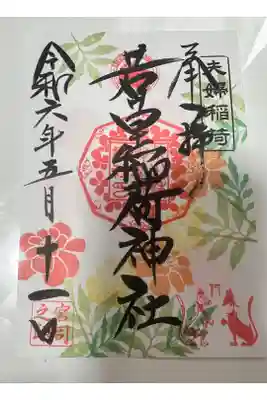 夫婦稲荷
奉拝
稲荷神社
令和六年五月十一日
宮司
之印